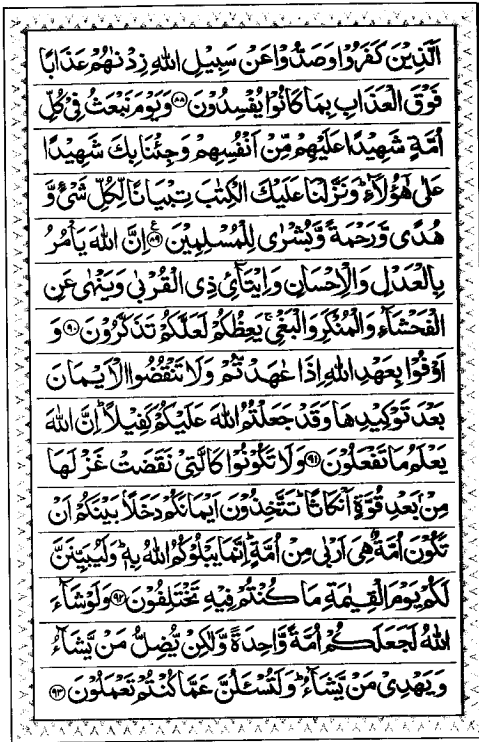 اَلَّذِیْنَ كَفَرُوْا وَصَدُّوْا عَنْ سَبِیْلِ اللّٰهِ زِدْنٰهُمْ عَذَابًا
فَوْقَ الْعَذَابِ بِمَا كَانُوْا یُفْسِدُوْنَ ۝۸۸ وَیَوْمَ نَبْعَثُ فِیْ كُلِّ
اُمَّةٍ شَهِیْدًا عَلَیْهِمْ مِّنْ اَنْفُسِهِمْ وَجِئْنَا بِكَ شَهِیْدًا
عَلٰی هٰۤؤُلَآءِ ؕ وَنَزَّلْنَا عَلَیْكَ الْكِتٰبَ تِبْیَانًا لِّكُلِّ شَیْءٍ وَّ
هُدًی وَّرَحْمَةً وَّبُشْرٰی لِلْمُسْلِمِیْنَ ۝۸۹ اِنَّ اللّٰهَ یَاْمُرُ
بِالْعَدْلِ وَالْاِحْسَانِ وَاِیْتَآئِ ذِی الْقُرْبٰی وَیَنْهٰی عَنِ
الْفَحْشَآءِ وَالْمُنْكَرِ وَالْبَغْیِ ۚ یَعِظُكُمْ لَعَلَّكُمْ تَذَكَّرُوْنَ ۝۹۰ وَ
اَوْفُوْا بِعَهْدِ اللّٰهِ اِذَا عٰهَدْتُّمْ وَلَا تَنْقُضُوا الْاَیْمَانَ
بَعْدَ تَوْكِیْدِهَا وَقَدْ جَعَلْتُمُ اللّٰهَ عَلَیْكُمْ كَفِیْلًا ؕ اِنَّ اللّٰهَ
یَعْلَمُ مَا تَفْعَلُوْنَ ۝۹۱ وَلَا تَكُوْنُوْا كَالَّتِیْ نَقَضَتْ غَزْلَهَا
مِنْۢ بَعْدِ قُوَّةٍ اَنْكَاثًا ؕ تَتَّخِذُوْنَ اَیْمَانَكُمْ دَخَلًۢا بَیْنَكُمْ اَنْ
تَكُوْنَ اُمَّةٌ هِیَ اَرْبٰی مِنْ اُمَّةٍ ؕ اِنَّمَا یَبْلُوْكُمُ اللّٰهُ بِهٖ ؕ وَلَیُبَیِّنَنَّ
لَكُمْ یَوْمَ الْقِیٰمَةِ مَا كُنْتُمْ فِیْهِ تَخْتَلِفُوْنَ ۝۹۲ وَلَوْ شَآءَ
اللّٰهُ لَجَعَلَكُمْ اُمَّةً وَّاحِدَةً وَّلٰكِنْ یُّضِلُّ مَنْ یَّشَآءُ
وَیَهْدِیْ مَنْ یَّشَآءُ ؕ وَلَتُسْـَٔلُنَّ عَمَّا كُنْتُمْ تَعْمَلُوْنَ ۝۹۳